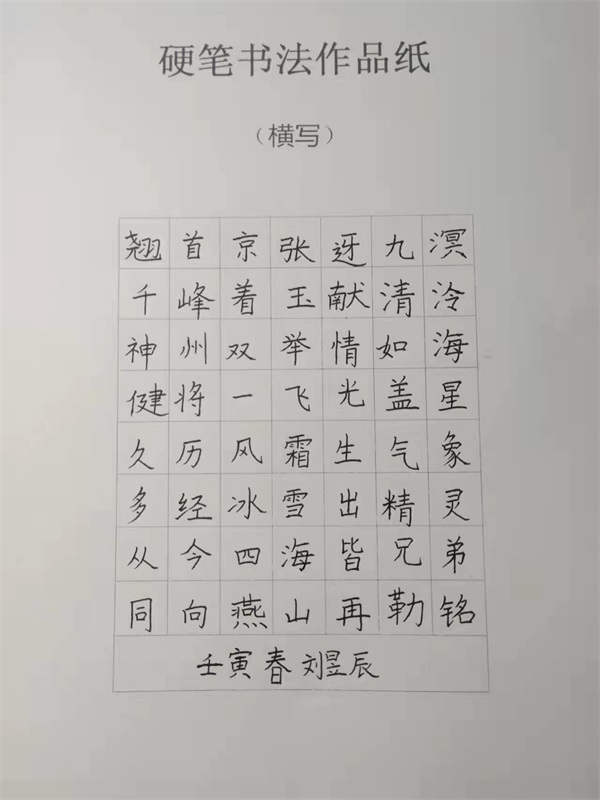 硬笔书法作品纸
（横写）
翘首京张迓九溟
千峰着玉献清泠
神州双举情如海
健将一飞光盖星
久历风霜生气象
多经冰雪出精灵
从今四海皆兄弟
同向燕山再勒铭
壬寅春刘昱辰